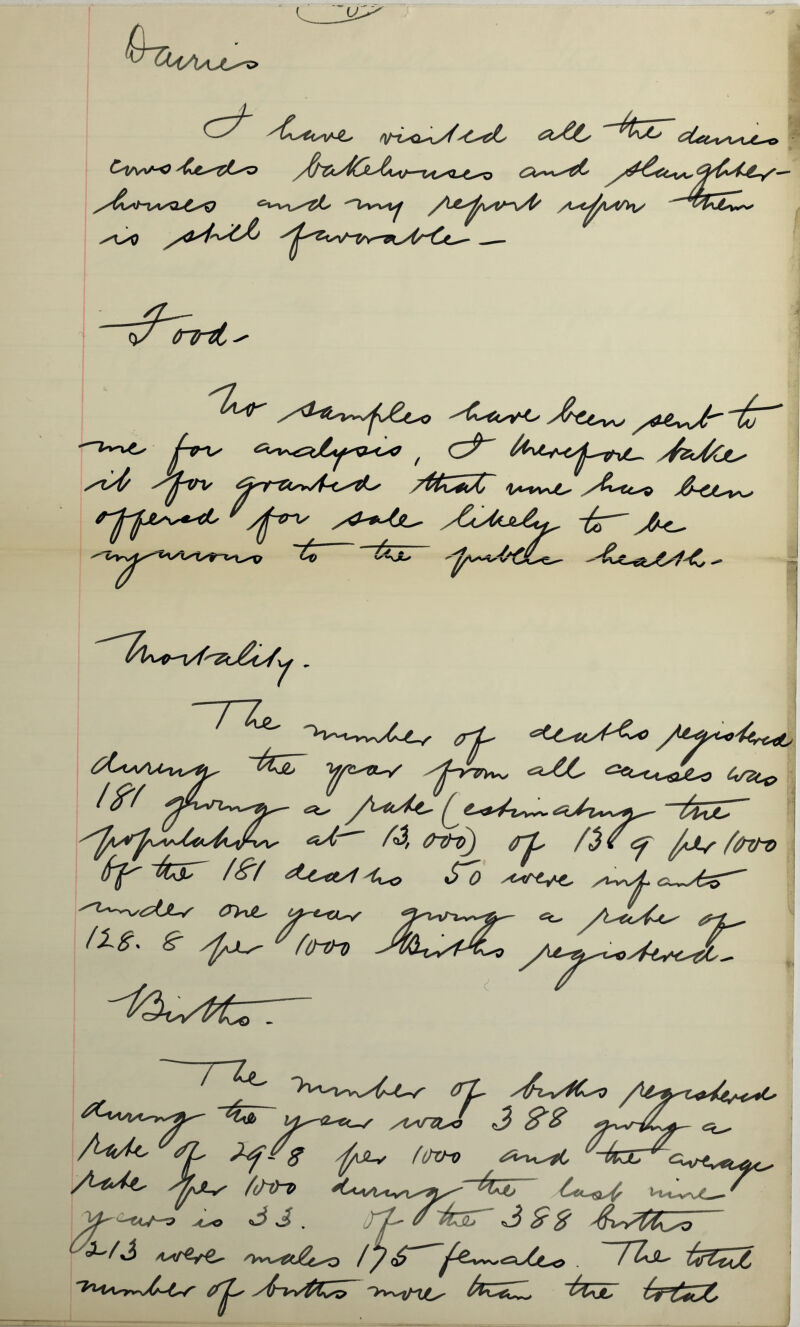 Dairies
I have visited all the dairies
cowsheds bakehouses and slaughter-
houses and my report upon them
is still favorable —
Food-
No samples have been sent to
me for analysis, I therefore take
it for granted that none has been
offered for sale likely to be
injurious to the public health-
Mortality.
The number of deaths registered
during the year from all causes was
181 giving a rate (estimating the
population at 13,000) of 13.9 per 1000
Of the 181 deaths 50 were infants
under one year giving a rate of
128.8 per 1000 Births registered-
Births.
The number of births registered
during the year was 388 giving a
rate of 29-8 per 1000 and the average
rate per 1000 during the last nine
years is 33. Of the 388 births
213 were males 175 females. The total
number of births more than the total